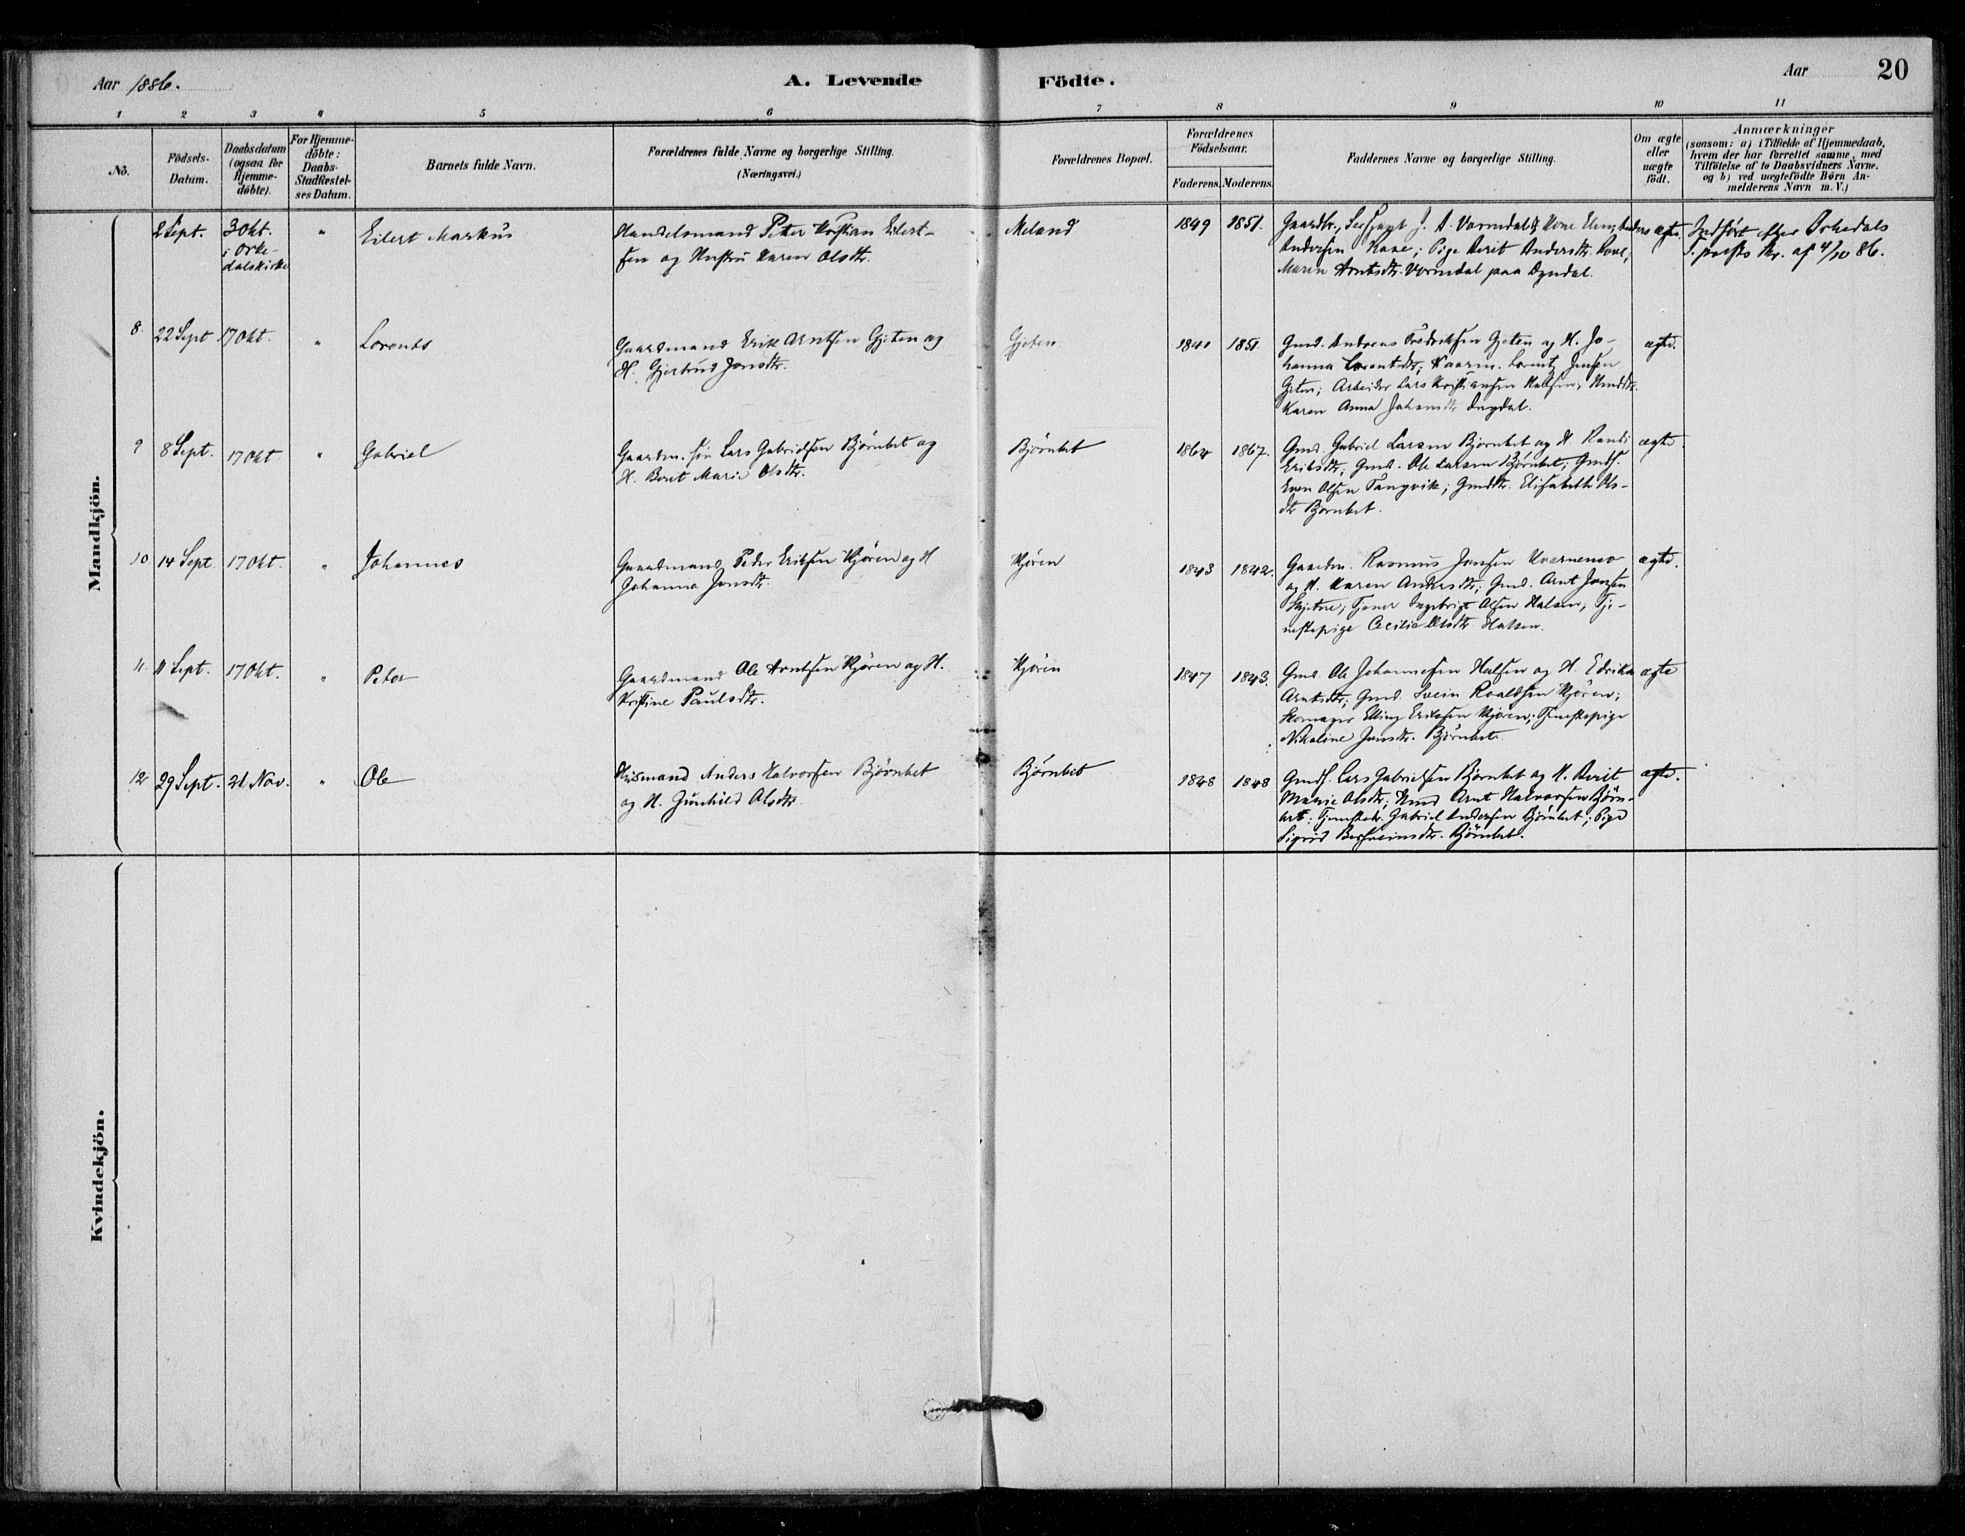 Aar 1886.
A. Levende Födte.
Aar
20
1 2 3 4 5 6 7 8 9 10 11
No.
Födsels-
Datum.
Daabsdatum
(ogsaa for
Hjemme-
döbte).
For Hjemme-
döbte:
Daabs-
Stadfæstel-
ses Datum.
Barnets fulde Navn.
Forældrenes fulde Navne og borgerlige Stilling.
(Næringsvei.)
Forældrenes Bopæl.
Forældrenes
Födselsaar.
Faderens. Moderens.
Faddernes Navne og borgerlige Stilling.
Om ægte
eller
uægte
födt.
Anmærkninger
(saasom: a) i Tilfælde af Hjemmedaab,
hvem der har forrettet samme, med
Tilföielse af to Daabsvidners Navne.
og b) ved uægtefödte Börn An-
melderens Navn m. V.)
Mandkjön.
2 Sept.
3 Okt.
i Orke-
dalskirke
"
Eilert Markus
Handelsmand Peter Kristian Eilert-
sen og Hustru Karen Olsdtr.
Meland
1849 1851.
J. A. Vormdal & Kone
Andersen Kone; Pige Berit Andersdtr.
Maren Arntsdtr. Vormdal paa Dyndal.
ægte.
Indført efter Orkedals
S. præsts Skr. af 4/10 86.
8.
22 Sept
17 Okt.
"
Lorents
Gaardmand Erik Arntsen Gjeten og
H. Gjertrud Jonsdtr.
Gjeten
1840 1851.
Gmd. Andreas Fredriksen Gjeten og H. Jo-
hanna Lorentsdtr; Kaarm. Lorents Jensen
Gjeten; Arbeider Lars Kristiansen Halsen;
Karen Anna Johansdtr
ægte.
9
8 Sept.
17 Okt
"
Gabriel
Gaardm. søn Lars Gabrielsen Bjørnbet og
H. Berit Marie Olsdtr.
Bjørnbet
1864 1867.
Gmd. Gabriel Larsen Bjørnbet og H. Randi
Eriksdtr; Gmd. Ole Larsen Bjørnbet; Gmds.
Even Olsen Tangvik; Gmddtr. Elisabeth Ols-
dtr Bjørnbet.
ægte.
10
14 Sept.
17 Okt.
"
Johannes
Gaardmand Peder Eriksen Kjøren og H
Johanna Jonsdtr.
Kjøren
1843 1842.
Gaardm. Rasmus Jonsen Kvernemo
og H. Karen Andersdtr; Gmd. Arnt Jonsen
Tjener Ingebrigt Olsen Halsen, Tje-
nestepige Cecilie Olsdtr Halsen.
ægte.
11.
11 Sept.
17 Okt.
"
Peter
Gaardmand Ole Arntsen Kjøren og H.
Kristine Paulsdtr.
Kjøren
1847 1843.
Gmd. Ole Johannesen Halsen og H. Edrika
Arntsdtr; Gmd. Svein Roaldsen Kjøren;
Skomager Elling Eriksen Kjøren; Tjenestepige
Nikoline Jonsdtr. Bjørnbet.
ægte
12
29 Sept.
21. Nov.
"
Ole
Husmand Anders Halvorsen Bjørnbet
og H. Gunhild Olsdtr
Bjørnbet
1848 1848
Gmds. Lars Gabrielsen Bjørnbet og H. Berit
Marie Olsdtr; Hmd Arnt Halvorsen Bjørn-
bet; Tjenestek. Gabriel Andersen Bjørnbet; Pige
Sigrid Bjørnbet.
ægte.
Kvindekjön.